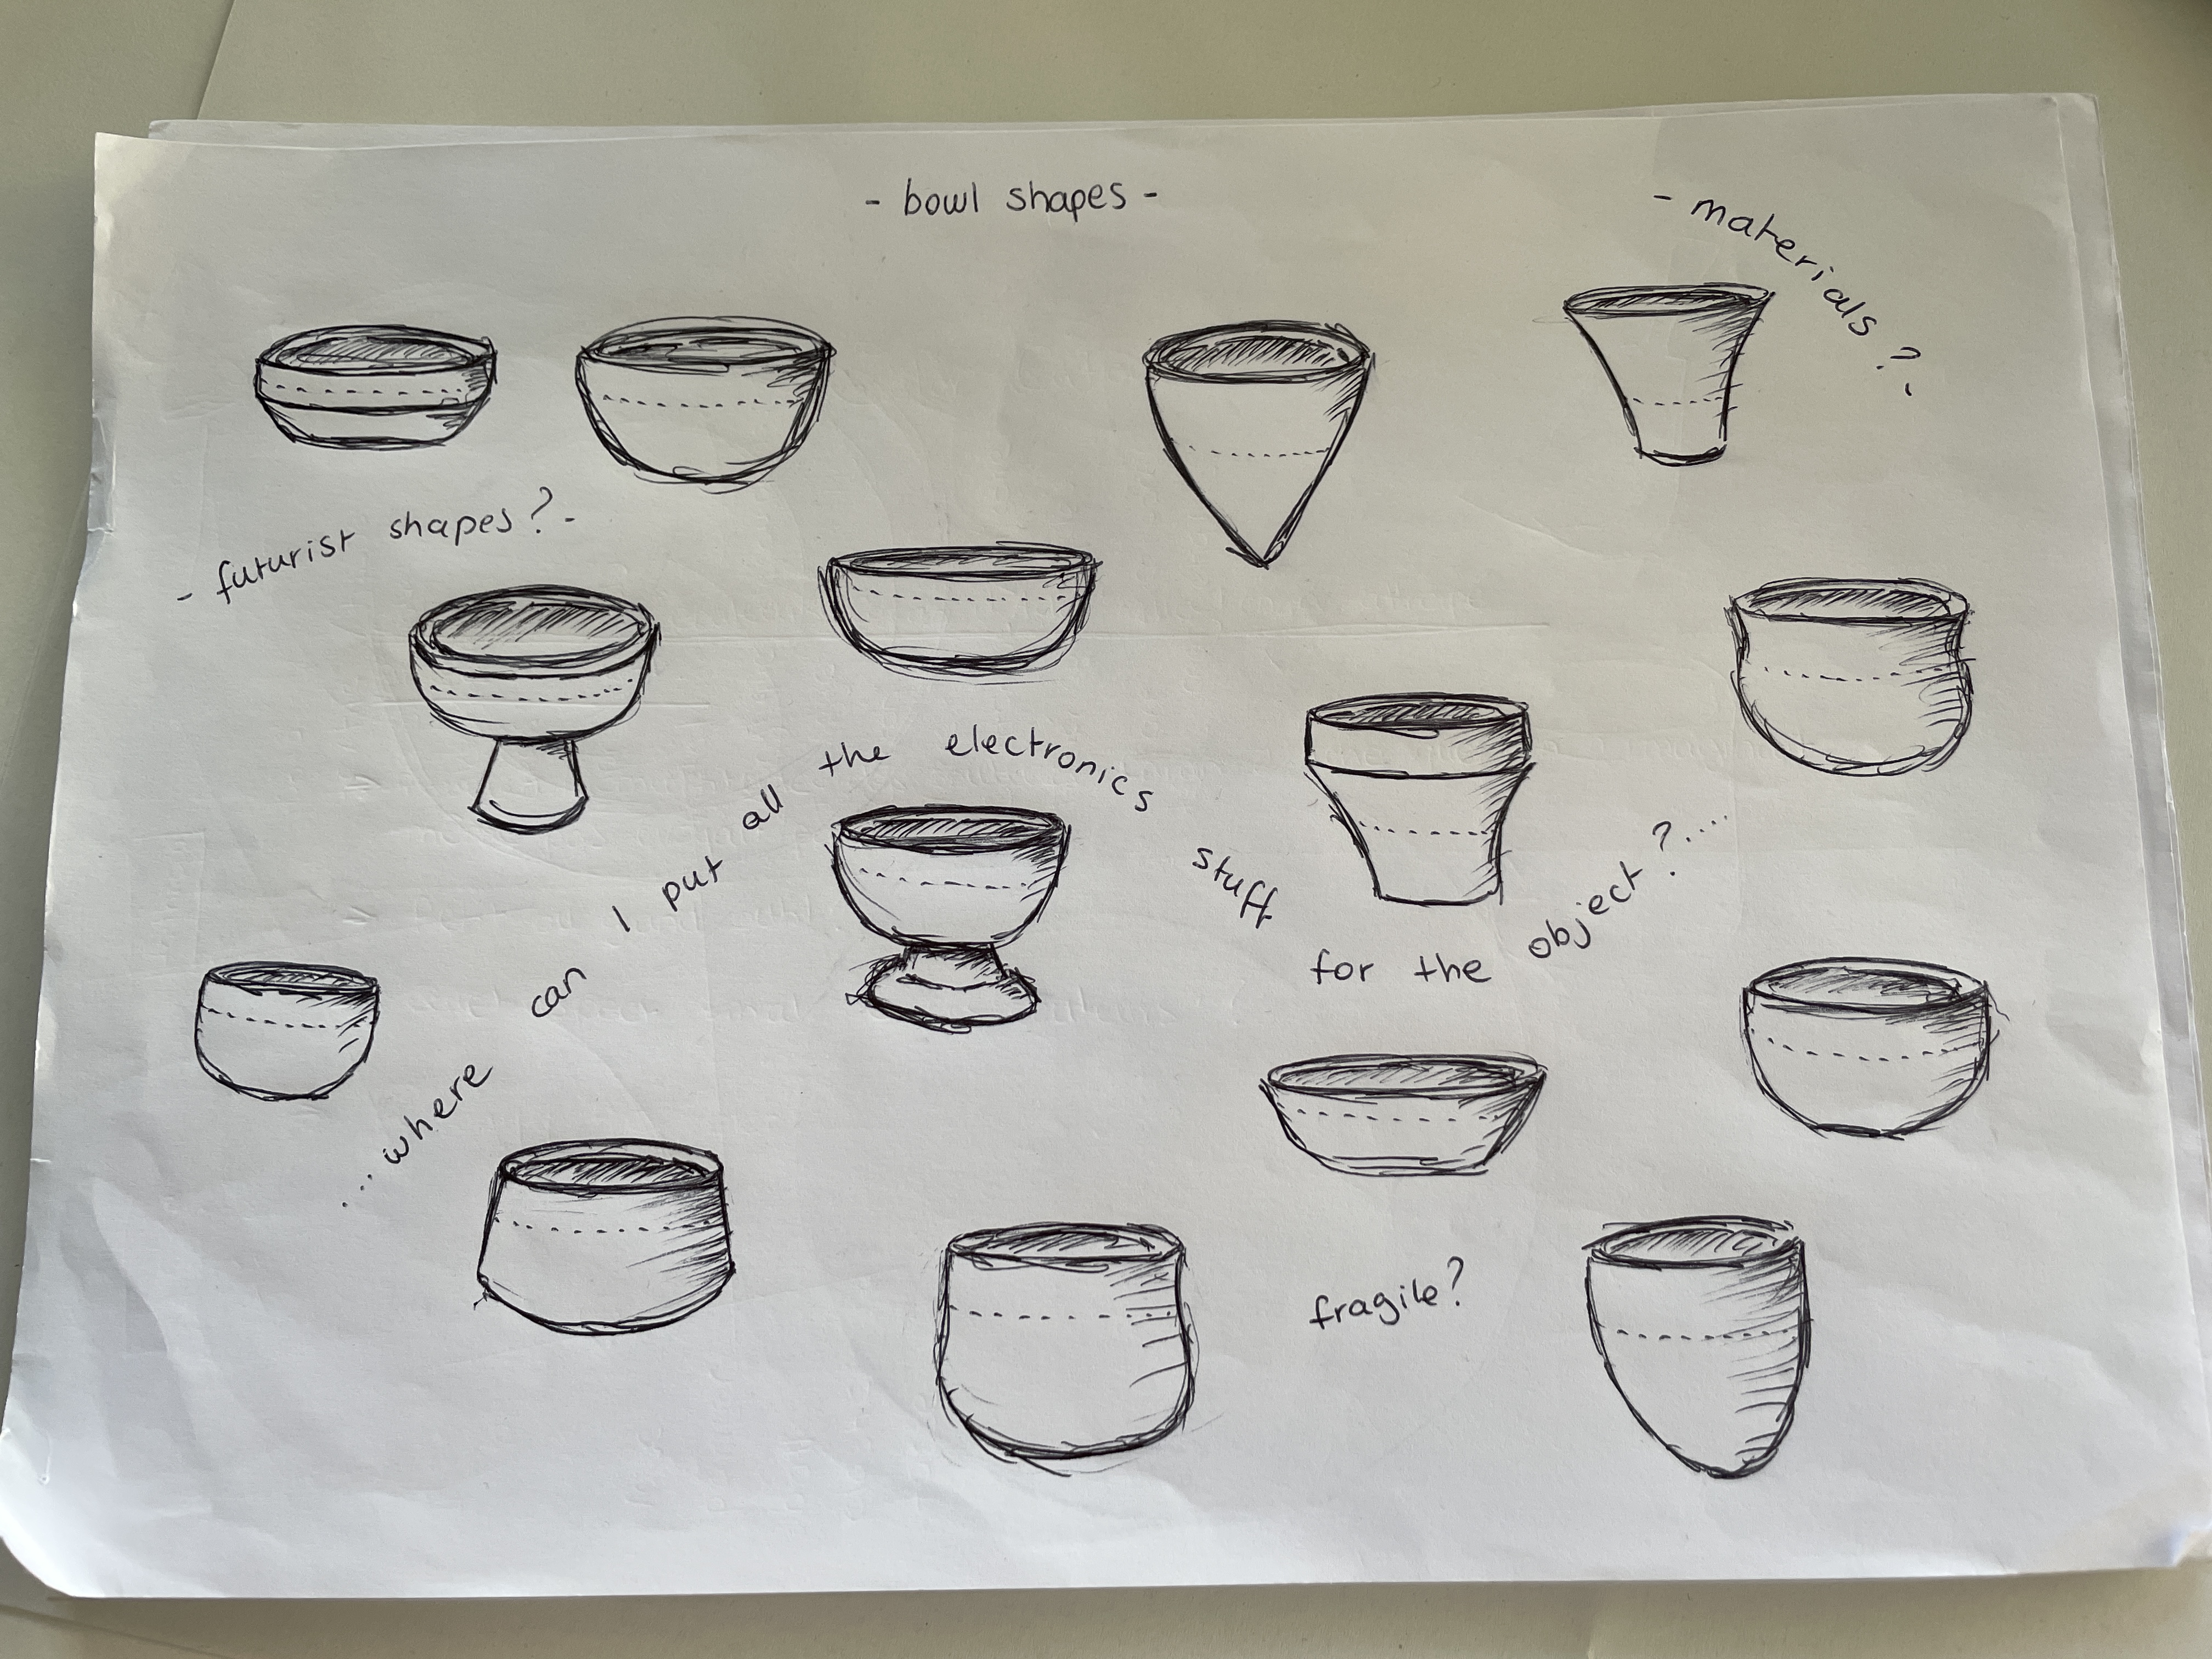 - bowl shapes -
- materials ?.
- futurist shapes? -
...where can I put all the electronics stuff for the object?....
fragile?